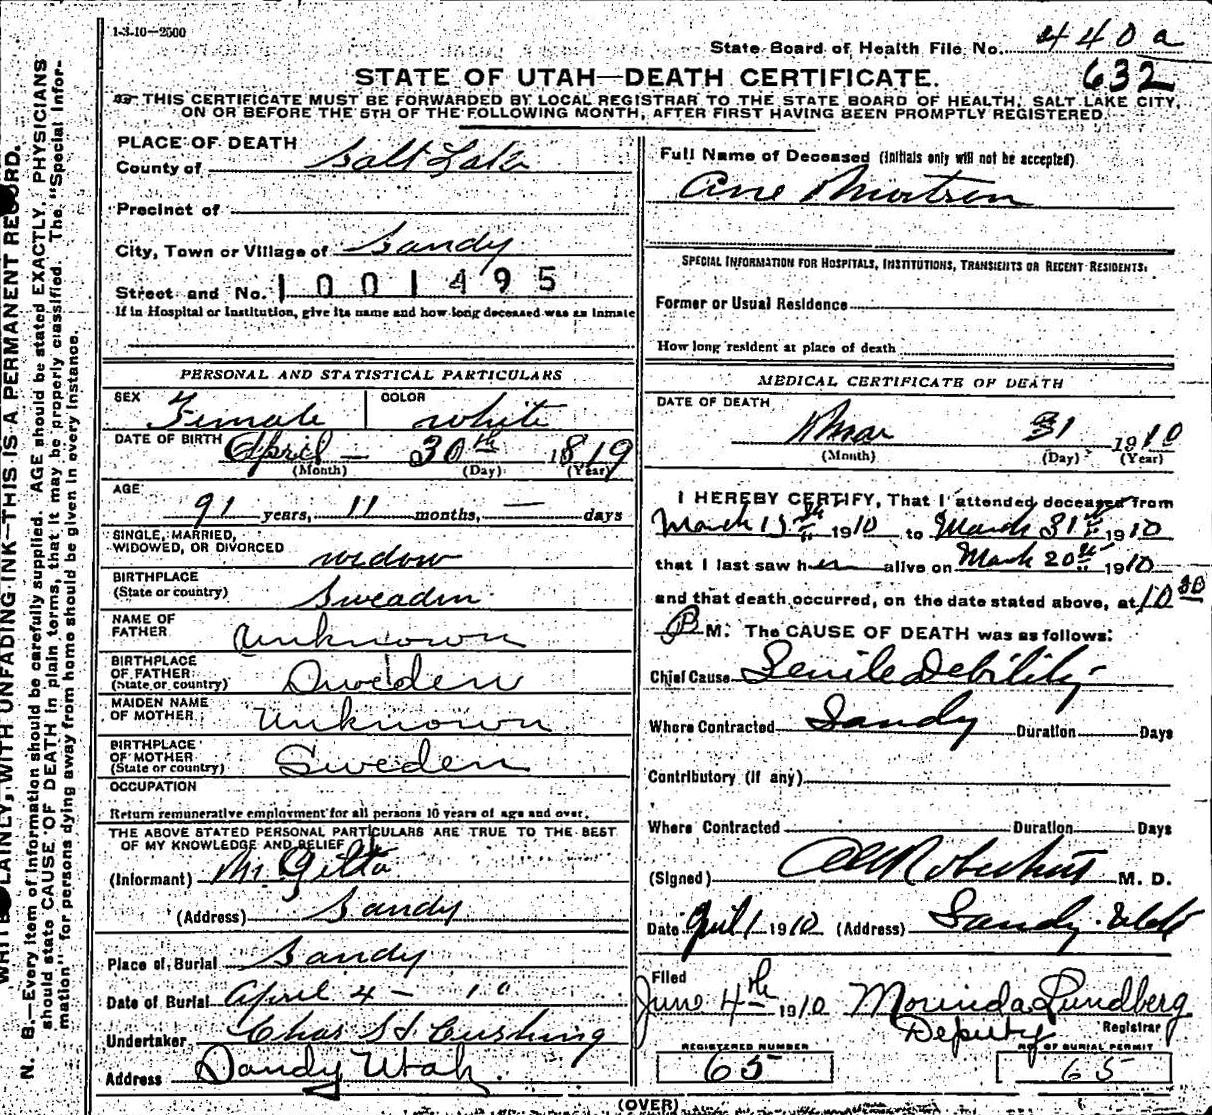 1-3-10-2500
State Board of Health File No. 440 a
632
STATE OF UTAH—DEATH CERTIFICATE.
THIS CERTIFICATE MUST BE FORWARDED BY LOCAL REGISTRAR TO THE STATE BOARD OF HEALTH, SALT LAKE CITY,
ON OR BEFORE THE 5TH OF THE FOLLOWING MONTH, AFTER FIRST HAVING BEEN PROMPTLY REGISTERED.
PLACE OF DEATH
County of Salt Lake
Precinct of
City, Town or Village of Sandy
Street and No. 1001495
If in Hospital or Institution, give its name and how long deceased was an inmate
PERSONAL AND STATISTICAL PARTICULARS
SEX Female COLOR white
DATE OF BIRTH April — 30th 1819
(Month) (Day) (Year)
AGE
91 years, 11 months, — days
SINGLE, MARRIED,
WIDOWED, OR DIVORCED widow
BIRTHPLACE
(State or country) Sweadin
NAME OF
FATHER Unknown
BIRTHPLACE
OF FATHER
(State or country) Sweden
MAIDEN NAME
OF MOTHER Unknown
BIRTHPLACE
OF MOTHER
(State or country) Sweden
OCCUPATION
Return remunerative employment for all persons 10 years of age and over.
THE ABOVE STATED PERSONAL PARTICULARS ARE TRUE TO THE BEST
OF MY KNOWLEDGE AND BELIEF
(Informant) M.
(Address) Sandy
Place of Burial Sandy
Date of Burial April 4 - 10
Undertaker Chas S Cushing
Address Sandy Utah
Full Name of Deceased (Initials only will not be accepted)
Ane Mortsen
SPECIAL INFORMATION FOR HOSPITALS, INSTITUTIONS, TRANSIENTS OR RECENT RESIDENTS:
Former or Usual Residence
How long resident at place of death
MEDICAL CERTIFICATE OF DEATH
DATE OF DEATH
Mar 31 1910
(Month) (Day) (Year)
I HEREBY CERTIFY, That I attended deceased from
March 15th 1910 to March 31st 1910
that I last saw her alive on March 20th 1910
and that death occurred, on the date stated above, at 10 30
P M. The CAUSE OF DEATH was as follows:
Chief Cause Senile Debility
Where Contracted Sandy Duration Days
Contributory (if any)
Where Contracted Duration Days
(Signed) M. D.
Date April 1 1910 (Address) Sandy Utah
Filed
June 4th 1910 Morinda Lundberg
Deputy Registrar
REGISTERED NUMBER
65
NO. OF BURIAL PERMIT
65
(OVER)
PLAINLY, WITH UNFADING INK—THIS IS A PERMANENT RECORD.
N. B.—Every item of information should be carefully supplied. AGE should be stated EXACTLY. PHYSICIANS
should state CAUSE OF DEATH in plain terms, that it may be properly classified. The "Special Infor-
mation" for persons dying away from home should be given in every instance.